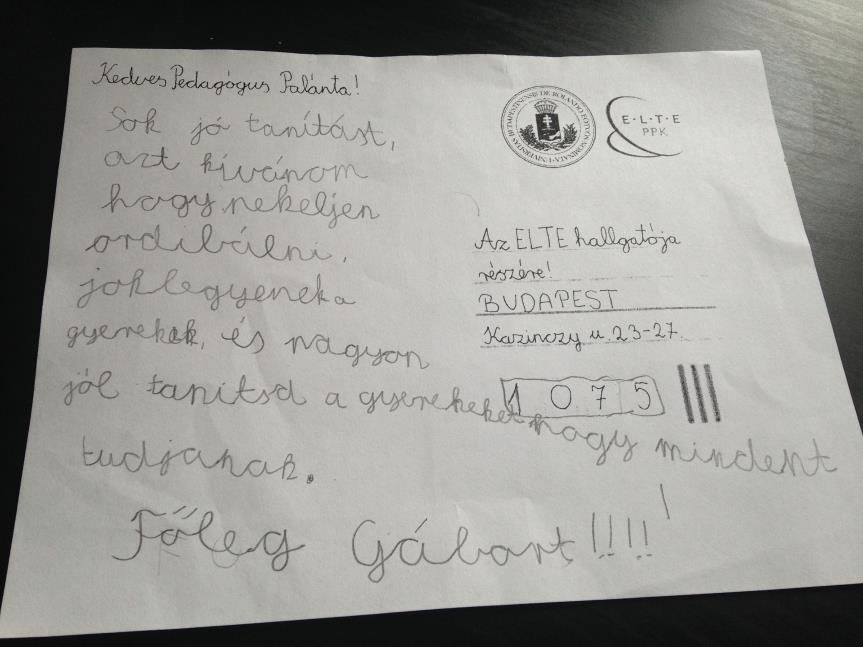 Kedves Pedagógus Palánta!
Sok jó tanítást,
azt kívánom
hogy nekeljen
ordibálni,
joklegyeneka
gyerekek, és nagyon
jól tanitsd a gyerekeket hogy mindent
tudjanak.
Főleg Gábort!!!!
E·L·T·E
PPK
Az ELTE hallgatója
részére!
BUDAPEST
Kazinczy u. 23-27.
1075